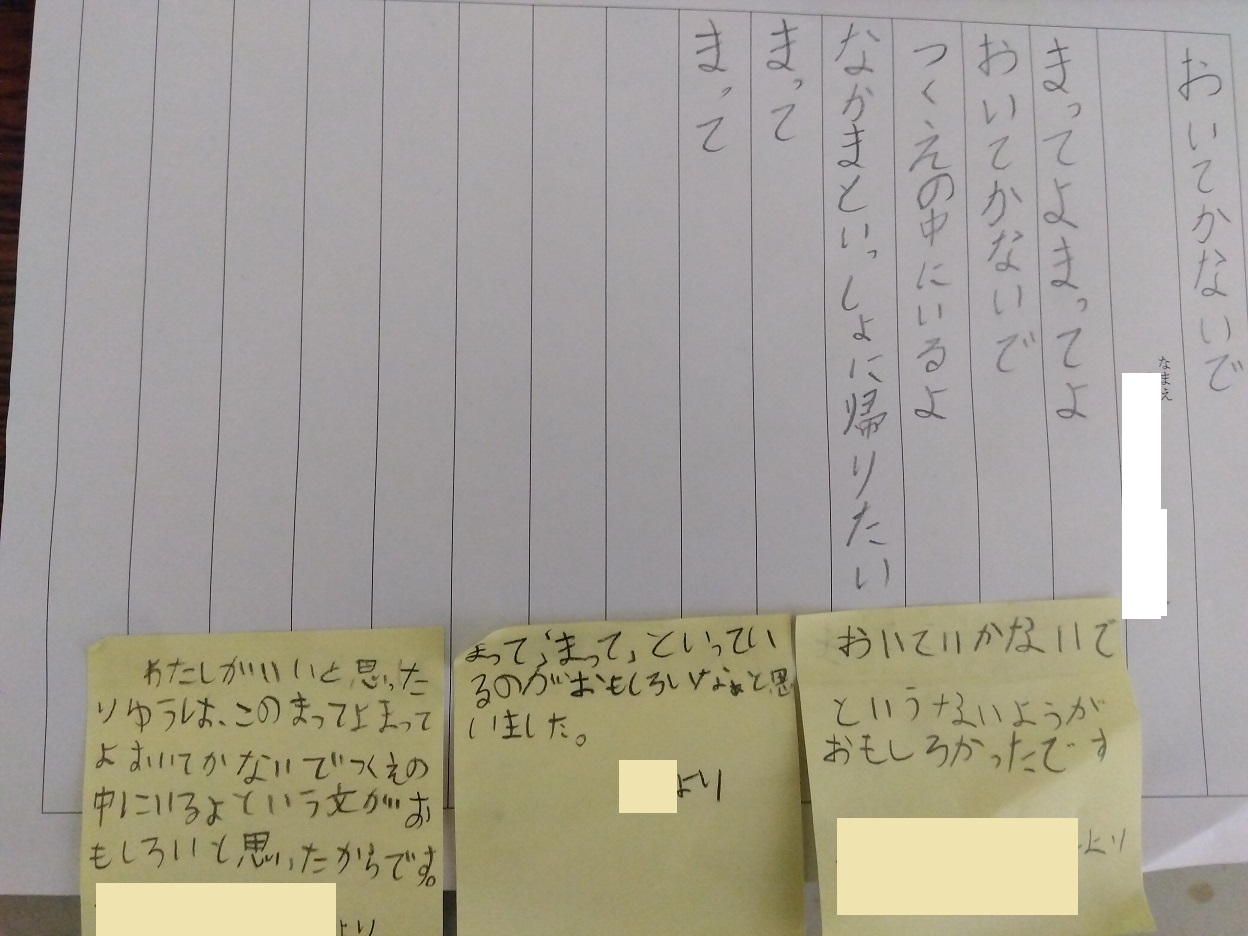 おいてかないで
なまえ
まってよまってよ
おいてかないで
つくえの中にいるよ
なかまといっしょに帰りたい
まって
まって
おいていかないで
というないようが
おもしろかったです
より
まって、まって、といってい
るのがおもしろいなぁと思
いました。
より
わたしがいいと思った
りゆうは、このまってよまって
よおいてかないでつくえの
中にいるよという文がお
もしろいと思ったからです。
より